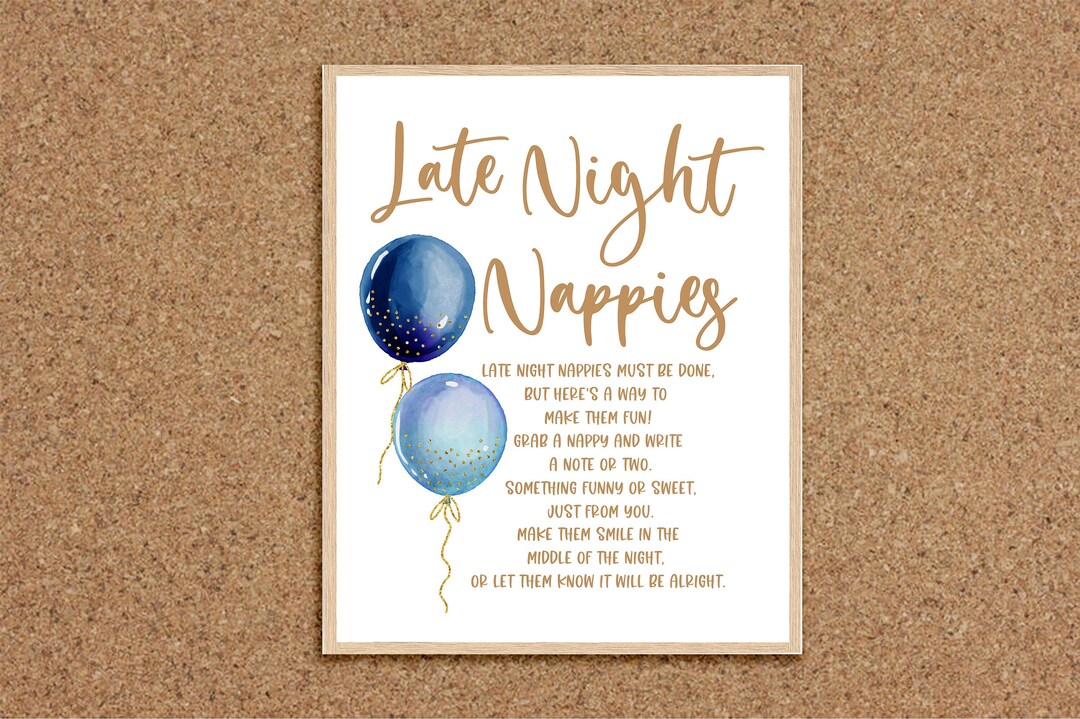 Late Night
Nappies
LATE NIGHT NAPPIES MUST BE DONE,
BUT HERE'S A WAY TO
MAKE THEM FUN!
GRAB A NAPPY AND WRITE
A NOTE OR TWO.
SOMETHING FUNNY OR SWEET,
JUST FROM YOU.
MAKE THEM SMILE IN THE
MIDDLE OF THE NIGHT,
OR LET THEM KNOW IT WILL BE ALRIGHT.